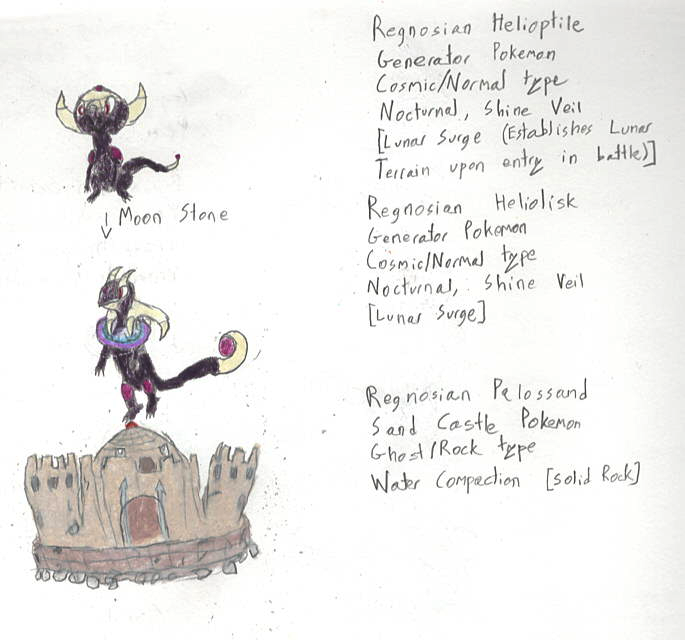 Regnosian Helioptile
Generator Pokemon
Cosmic/Normal type
Nocturnal, Shine Veil
[Lunar Surge (Establishes Lunar
Terrain upon entry in battle)]
Moon Stone
Regnosian Heliolisk
Generator Pokemon
Cosmic/Normal type
Nocturnal, Shine Veil
[Lunar Surge]
Regnosian Palossand
Sand Castle Pokemon
Ghost/Rock type
Water Compaction [Solid Rock]